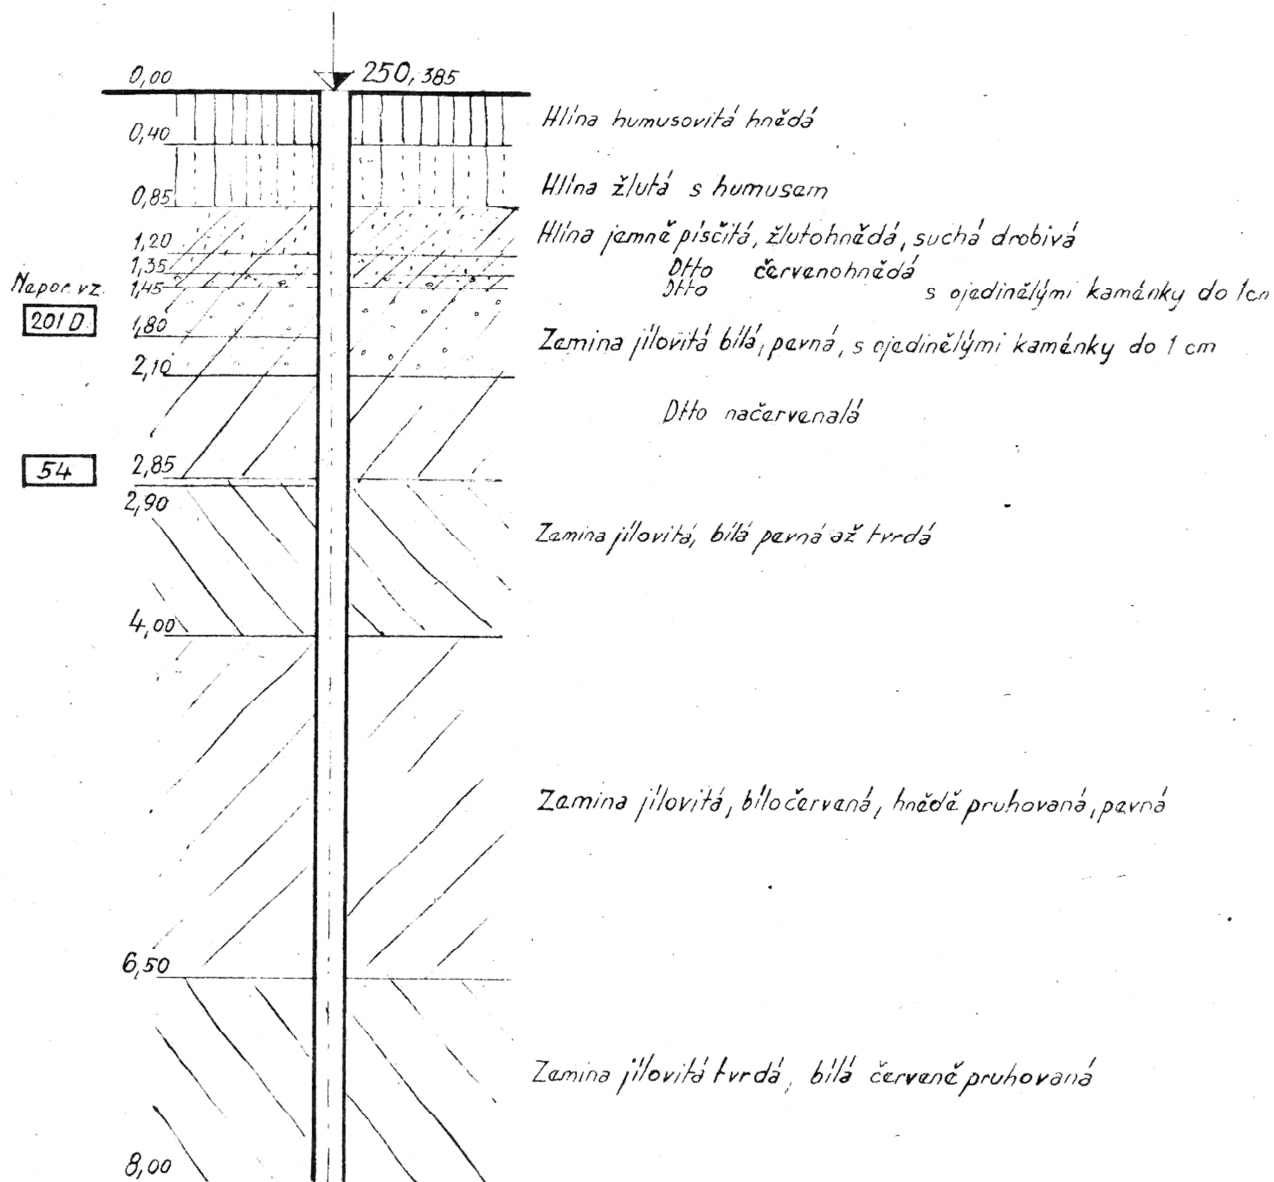 0,00 250,385
Hlína humusovitá hnědá
0,40
Hlína žlutá s humusem
0,85
Hlína jemně písčitá, žlutohnědá, suchá drobivá
1,20
Dtto červenohnědá
1,35
Dtto s ojedinělými kaménky do 1cm
Nepor. vz. 1,45
201 D 1,80
Zemina jílovitá bílá, pevná, s ojedinělými kaménky do 1 cm
2,10
Dtto načervenalá
54 2,85
2,90
Zemina jílovitá, bílá pevná až tvrdá
4,00
Zemina jílovitá, bíločervená, hnědě pruhovaná, pevná
6,50
Zemina jílovitá tvrdá, bílá červeně pruhovaná
8,00